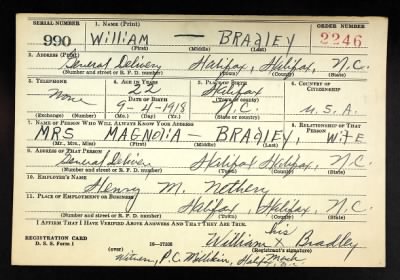 SERIAL NUMBER 1. NAME (Print) ORDER NUMBER
990 William — BRADLEY 2246
(First) (Middle) (Last)
2. ADDRESS (Print)
General Delivery Halifax, Halifax, N.C.
(Number and street or R. F. D. number) (Town) (County) (State)
3. TELEPHONE 4. AGE IN YEARS 5. PLACE OF BIRTH 6. COUNTRY OF CITIZENSHIP
None 22 Halifax
DATE OF BIRTH
9-4-1918 N.C. U.S.A.
(Exchange) (Number) (Mo.) (Day) (Yr.) (State or country)
7. NAME OF PERSON WHO WILL ALWAYS KNOW YOUR ADDRESS 8. RELATIONSHIP OF THAT PERSON
MRS MAGNOLIA BRADLEY, WIFE
(Mr., Mrs., Miss) (First) (Middle) (Last)
9. ADDRESS OF THAT PERSON
General Delivery Halifax Halifax, N.C.
(Number and street or R. F. D. number) (Town) (County) (State)
10. EMPLOYER'S NAME
Henry M.
11. PLACE OF EMPLOYMENT OR BUSINESS
Halifax, Halifax, N.C.
(Number and street or R. F. D. number) (Town) (County) (State)
I AFFIRM THAT I HAVE VERIFIED ABOVE ANSWERS AND THAT THEY ARE TRUE.
his
REGISTRATION CARD William X Bradley
D. S. S. Form 1 16-17105 mark
(over)
Witness, P.C.